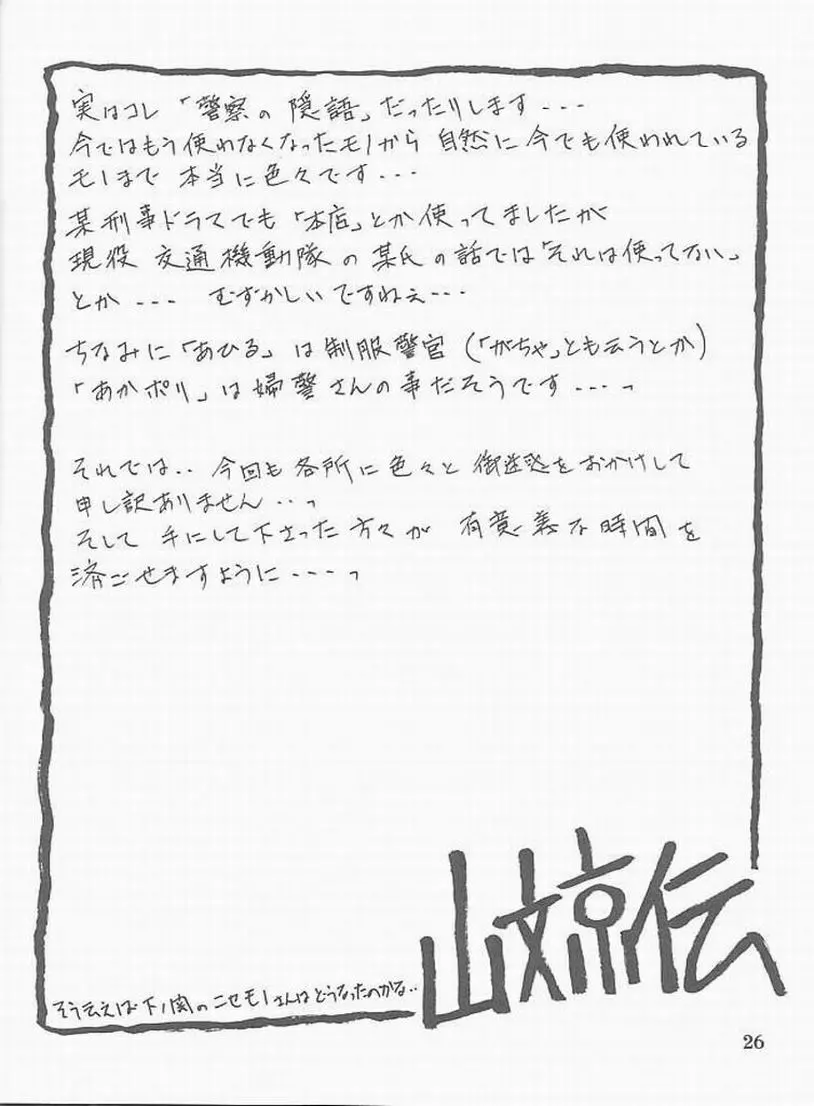 実はコレ「警察の隠語」だったりします---
今ではもう使われなくなったモノから 自然に今でも使われている
モノまで 本当に色々です---
某刑事ドラマでも「本店」とか使ってましたが
現役 交通機動隊の某氏の話では「それは使ってない」
とか--- むずかしいですねぇ---
ちなみに「あひる」は制服警官(「がちゃ」とも云うとか)
「あかポリ」は婦警さんの事だそうです---っ
それでは‥ 今回も各所に色々と御迷惑をおかけして
申し訳ありません‥っ
そして 手にして下さった方々が 有意義な時間を
済ごせますように---っ
山文京伝
そう云えば下ノ関のニセモノさんはどうなったのかな‥
26